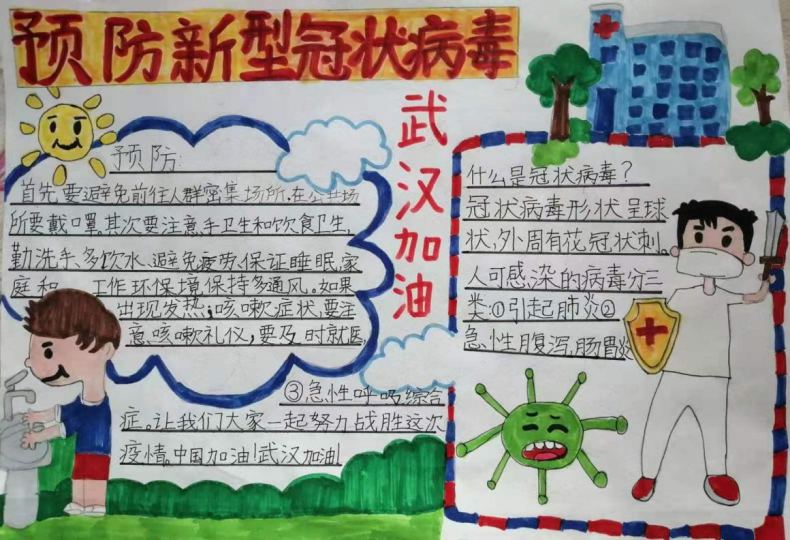 预防新型冠状病毒
武汉加油
预防:
首先,要避免前往人群密集场所.在公共场
所要戴口罩,其次要注意,手卫生和饮食卫生,
勤洗手、多饮水、避免疲劳、保证睡眠,家
庭和 工作环保境保持多通风。如果
出现发热;咳嗽症状,要注
意咳嗽礼仪,要及时就医,
什么是冠状病毒?
冠状病毒形状呈球
状,外周有花冠状刺。
人可感染的病毒分三
类:①引起肺炎②
急性腹泻,肠胃炎
③急性呼吸综合
症。让我们大家一起努力战胜这次
疫情。中国加油!武汉加油!